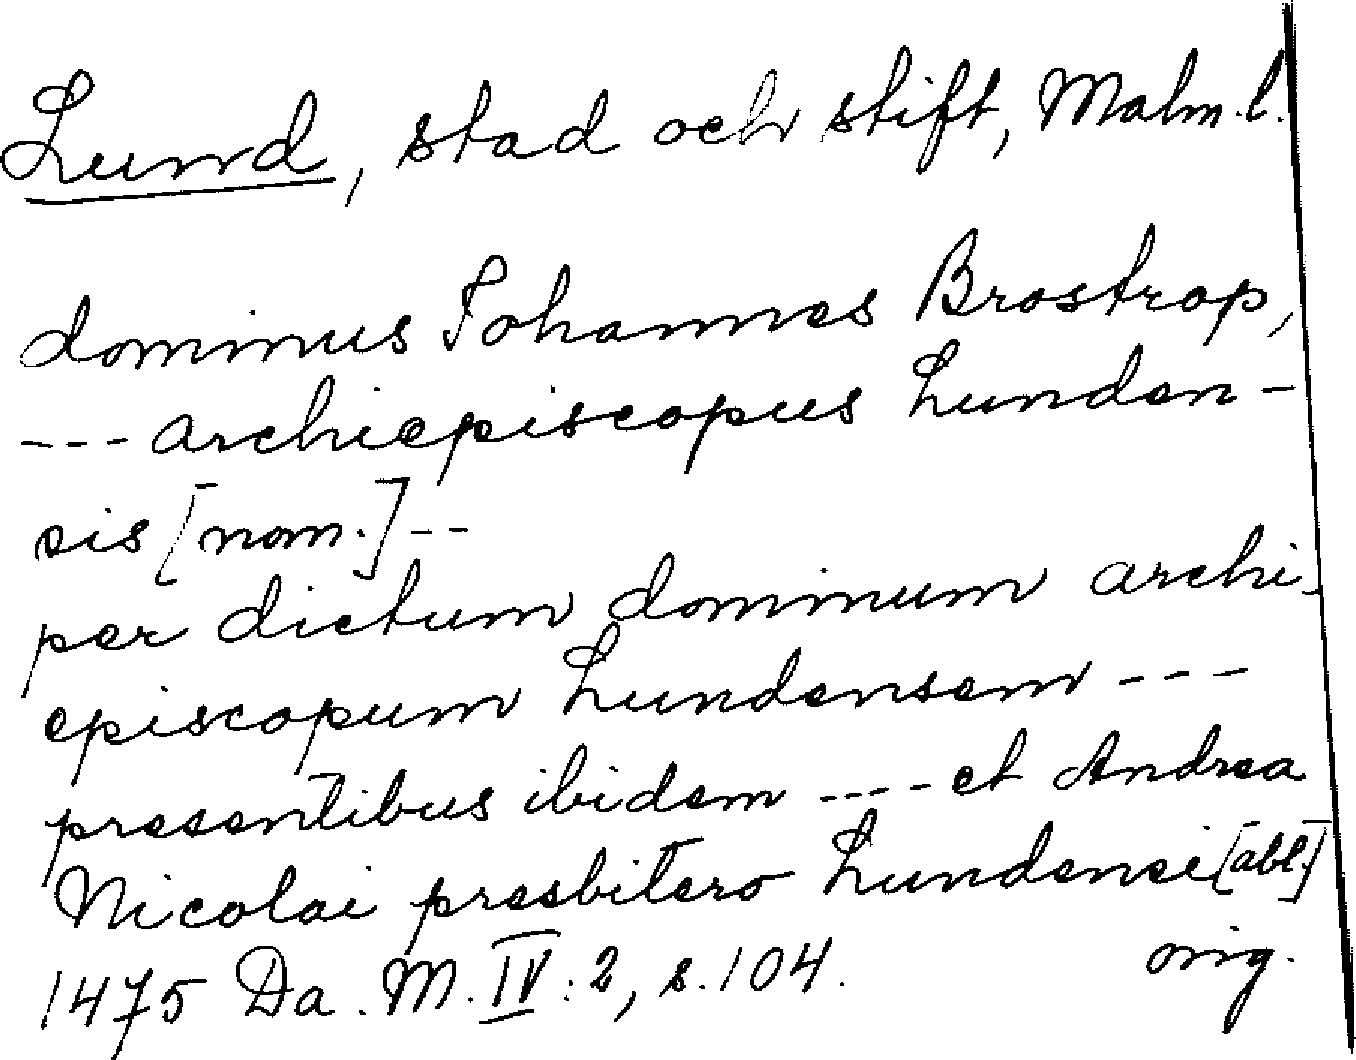 Lund, stad och stift, Malm.l.
dominus Johannes Brostrop,
--- archiepiscopus Lunden-
sis [nom.] --
per dictum dominum archi-
episcopum Lundensem ---
presentibus ibidem ---- et Andrea
Nicolai presbitero Lundensi [abl.]
1475 Da. M. IV:2, s. 104. orig.